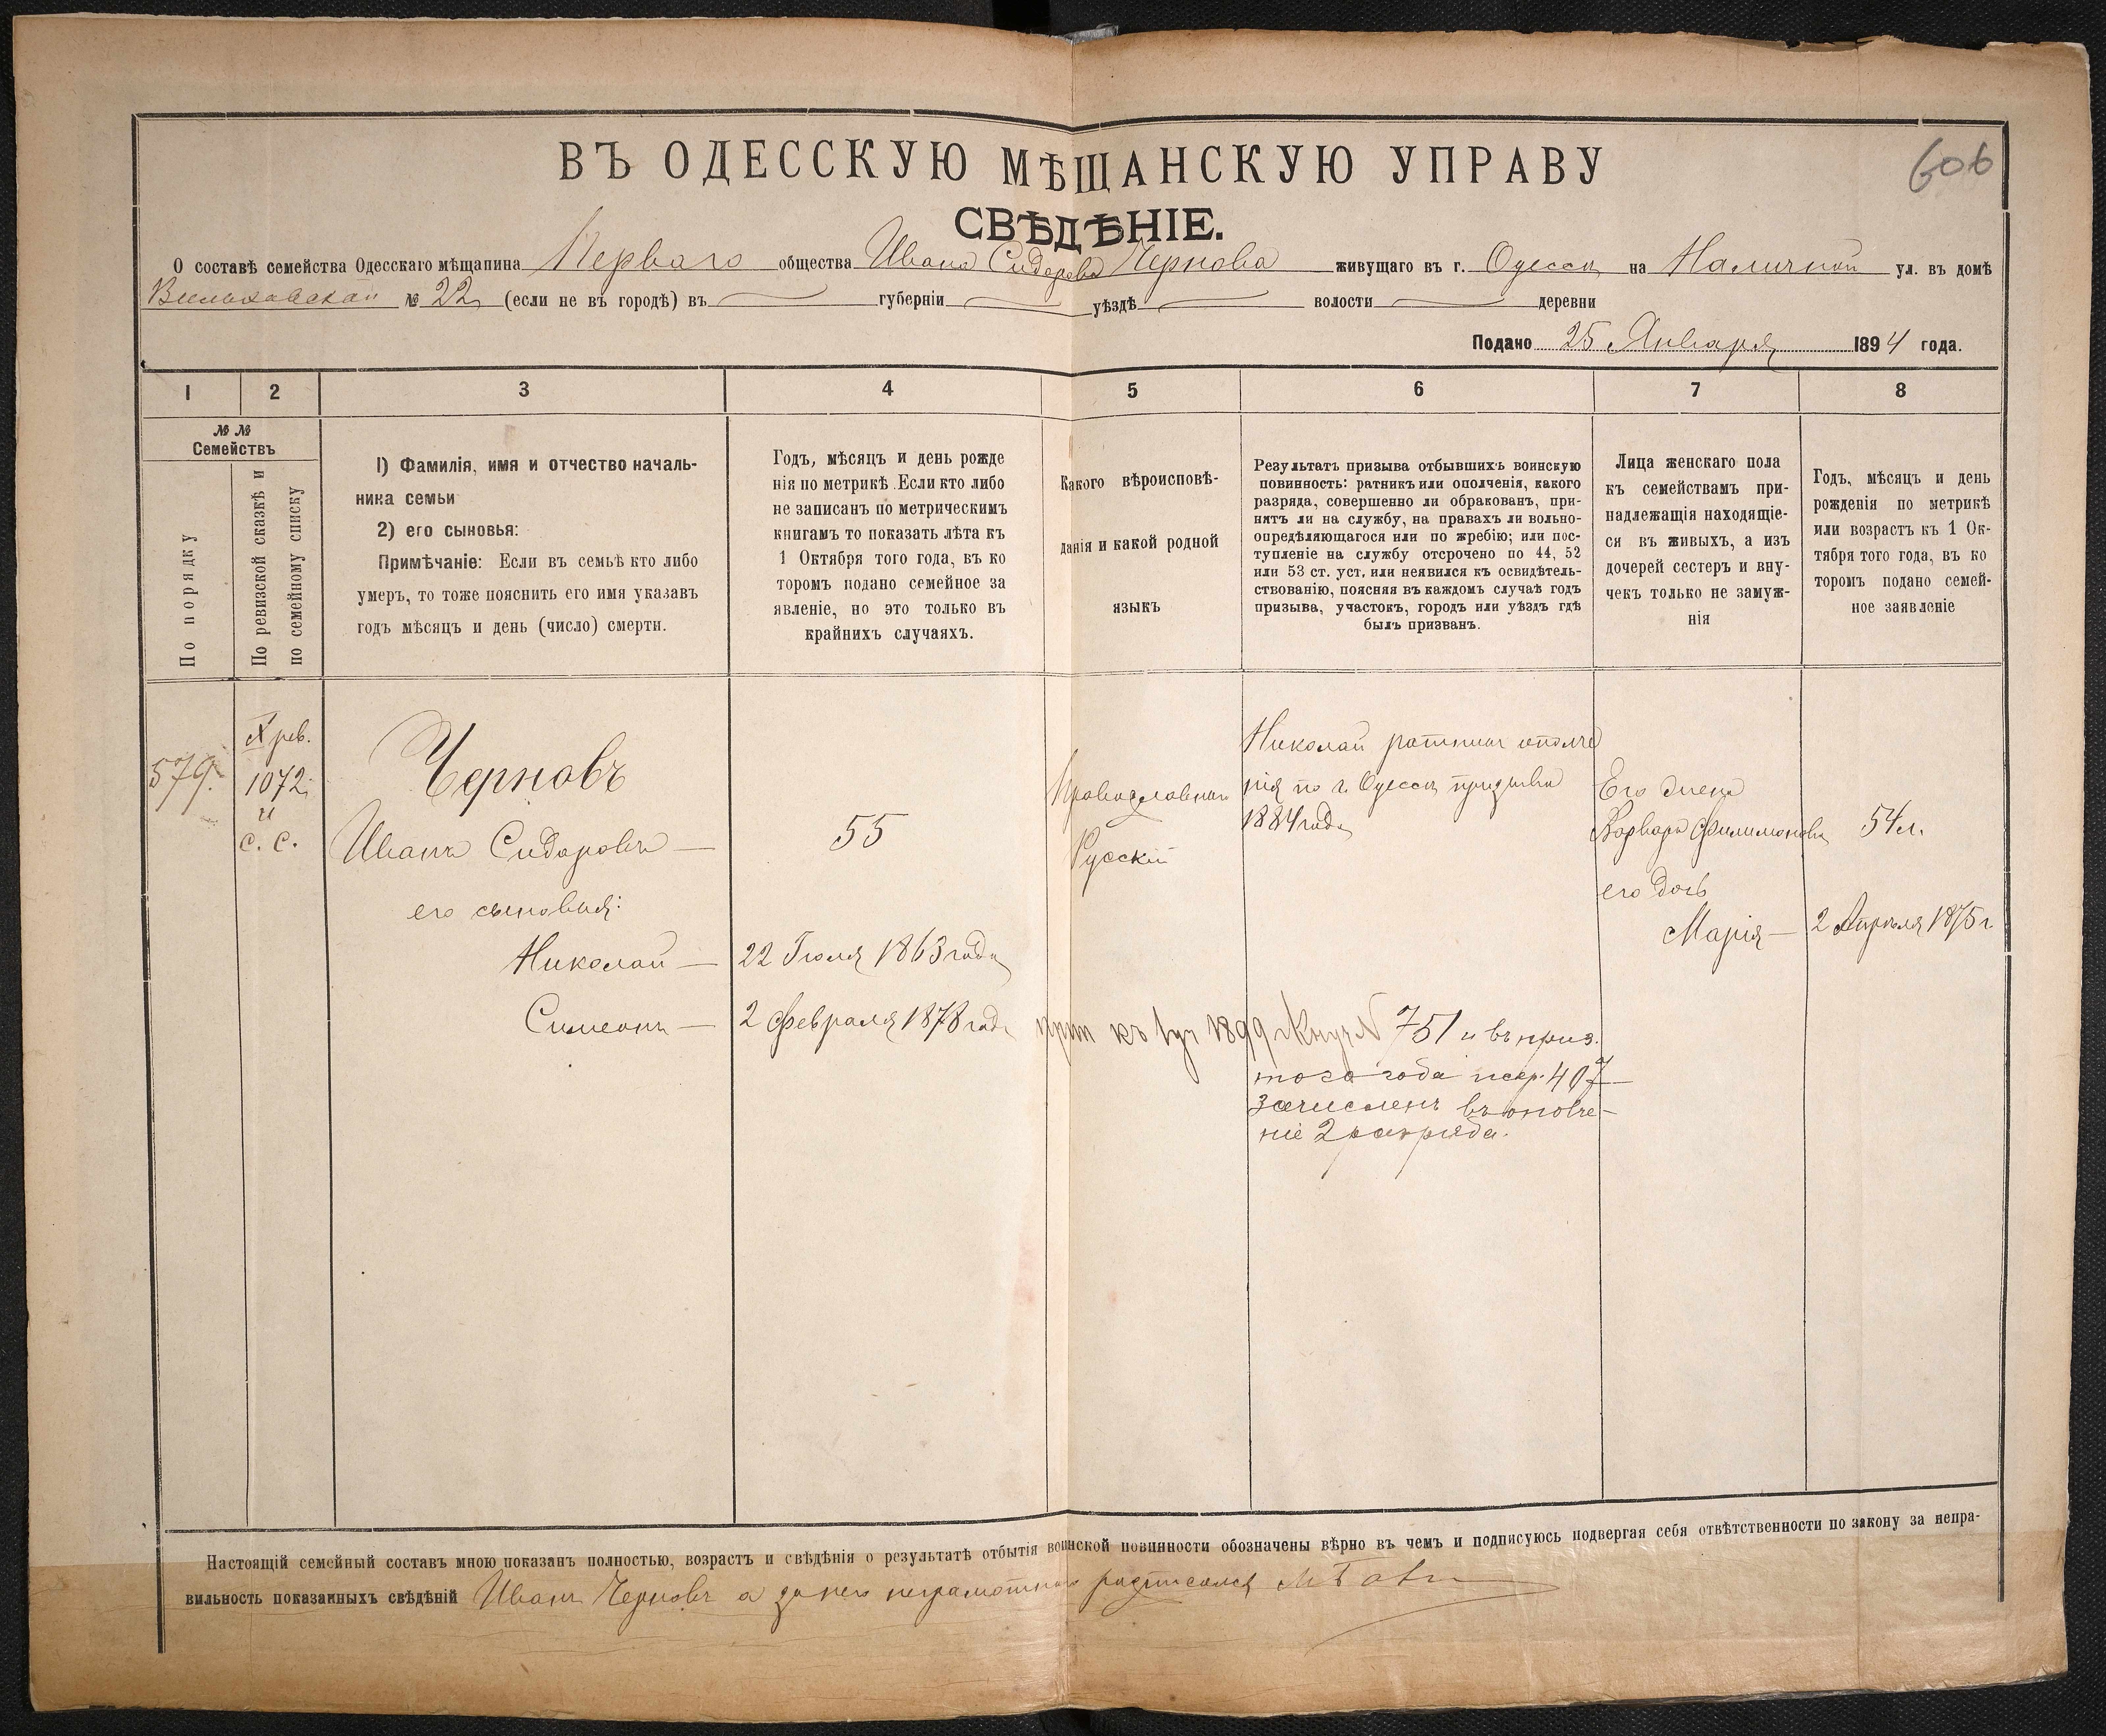 ВЪ ОДЕССКУЮ МѢЩАНСКУЮ УПРАВУ
606
СВѢДѢНІЕ.
О составѣ семейства Одесскаго мѣщанина Перваго общества Ивана Сидорова Чернова живущаго въ г. Одессѣ на Наличной ул. въ домѣ
№ 22 (если не въ городѣ) въ губерніи уѣздѣ волости деревни
Подано 25 Января 1894 года.
1 2 3 4 5 6 7 8
№ № Семействъ
По порядку
По ревизской сказкѣ и
по семейному списку
1) Фамилія, имя и отчество началь-
ника семьи
2) его сыновья:
Примѣчаніе: Если въ семьѣ кто либо
умеръ, то тоже пояснить его имя указавъ
годъ мѣсяцъ и день (число) смерти.
Годъ, мѣсяцъ и день рожде
нія по метрикѣ. Если кто либо
не записанъ по метрическимъ
книгамъ то показать лѣта къ
1 Октября того года, въ ко
торомъ подано семейное за
явленіе, но это только въ
крайнихъ случаяхъ.
Какого вѣроисповѣ-
данія и какой родной
языкъ
Результатъ призыва отбывшихъ воинскую
повинность: ратникъ или ополченія, какого
разряда, совершенно ли обракованъ, при-
нятъ ли на службу, на правахъ ли вольно-
опредѣляющагося или по жребію; или пос-
тупленіе на службу отсрочено по 44, 52
или 53 ст. уст. или неявился къ освидѣтель-
ствованію, поясняя въ каждомъ случаѣ годъ
призыва, участокъ, городъ или уѣздъ гдѣ
былъ призванъ.
Лица женскаго пола
къ семействамъ при-
надлежащія находящіе-
ся въ живыхъ, а изъ
дочерей сестеръ и вну-
чекъ только не замуж-
нія
Годъ, мѣсяцъ и день
рожденія по метрикѣ
или возрастъ къ 1 Ок-
тября того года, въ ко
торомъ подано семей-
ное заявленіе
579.
X рев.
1072
и
с. с.
Черновъ
Иванъ Сидоровъ — 55
его сыновья:
Николай — 22 Іюля 1863 года
Симеонъ — 2 Февраля 1878 года
Православный
Русскій
Николай ратникъ ополче
нія по г. Одессѣ призыва
1884 года
Его жена
Варвара Филимонова 54 л.
его дочь
Марія — 2 Апрѣля 1875 г.
къ 1899 № 751 и въ приз.
того года 407
зачисленъ въ ополче-
ніе 2 разряда.
Настоящій семейный составъ мною показанъ полностью, возрастъ и свѣдѣнія о результатѣ отбытія воинской повинности обозначены вѣрно въ чемъ и подписуюсь подвергая себя отвѣтственности по закону за непра-
вильность показанныхъ свѣдѣній Иванъ Черновъ а за него неграмотнаго расписался